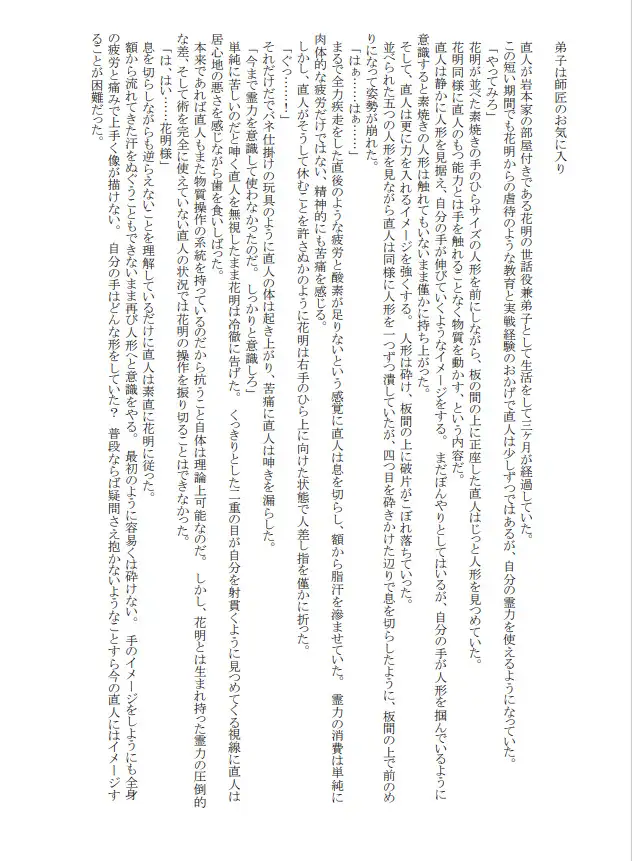 弟子は師匠のお気に入り
直人が岩本家の部屋付きである花明の世話役兼弟子として生活をして三ヶ月が経過していた。
この短い期間でも花明からの虐待のような教育と実戦経験のおかげで直人は少しずつではあるが、自分の霊力を使えるようになっていた。
「やってみろ」
花明が並べた素焼きの手のひらサイズの人形を前にしながら、板の間の上に正座した直人はじっと人形を見つめていた。
花明同様に直人のもつ能力とは手を触れることなく物質を動かす、という内容だ。
直人は静かに人形を見据え、自分の手が伸びていくようなイメージをする。まだぼんやりとしてはいるが、自分の手が人形を掴んでいるように
意識すると素焼きの人形は触れてもいないまま僅かに持ち上がった。
そして、直人は更に力を入れるイメージを強くする。人形は砕け、板間の上に破片がこぼれ落ちていった。
並べられた五つの人形を見ながら直人は同様に人形を一つずつ潰していたが、四つ目を砕きかけた辺りで息を切らしたように、板間の上で前のめ
りになって姿勢が崩れた。
「はぁ……はぁ……」
まるで全力疾走をした直後のような疲労と酸素が足りないという感覚に直人は息を切らし、額から脂汗を滲ませていた。霊力の消費は単純に
肉体的な疲労だけではない、精神的にも苦痛を感じる。
しかし、直人がそうして休むことを許さぬかのように花明は右手のひら上に向けた状態で人差し指を僅かに折った。
「ぐっ……！」
それだけだでバネ仕掛けの玩具のように直人の体は起き上がり、苦痛に直人は呻きを漏らした。
「今まで霊力を意識して使わなかったのだ。しっかりと意識しろ」
単純に苦しいのだと呻く直人を無視したまま花明は冷徹に告げた。くっきりとした二重の目が自分を射貫くように見つめてくる視線に直人は
居心地の悪さを感じながら歯を食いしばった。
本来であれば直人もまた物質操作の系統を持っているのだから抗うこと自体は理論上可能なのだ。しかし、花明とは生まれ持った霊力の圧倒的
な差、そして術を完全に使えていない直人の状況では花明の操作を振り切ることはできなかった。
「は、はい……花明様」
息を切らしながらも逆らえないことを理解しているだけに直人は素直に花明に従った。
額から流れてきた汗をぬぐうこともできないまま再び人形へと意識をやる。最初のように容易くは砕けない。手のイメージをしようにも全身
の疲労と痛みで上手く像が描けない。自分の手はどんな形をしていた？　普段ならば疑問さえ抱かないようなことすら今の直人にはイメージす
ることが困難だった。